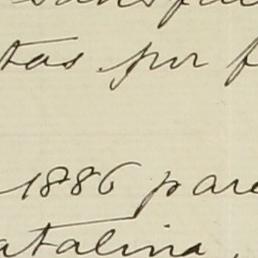 tas por f
1886 para
atalina,